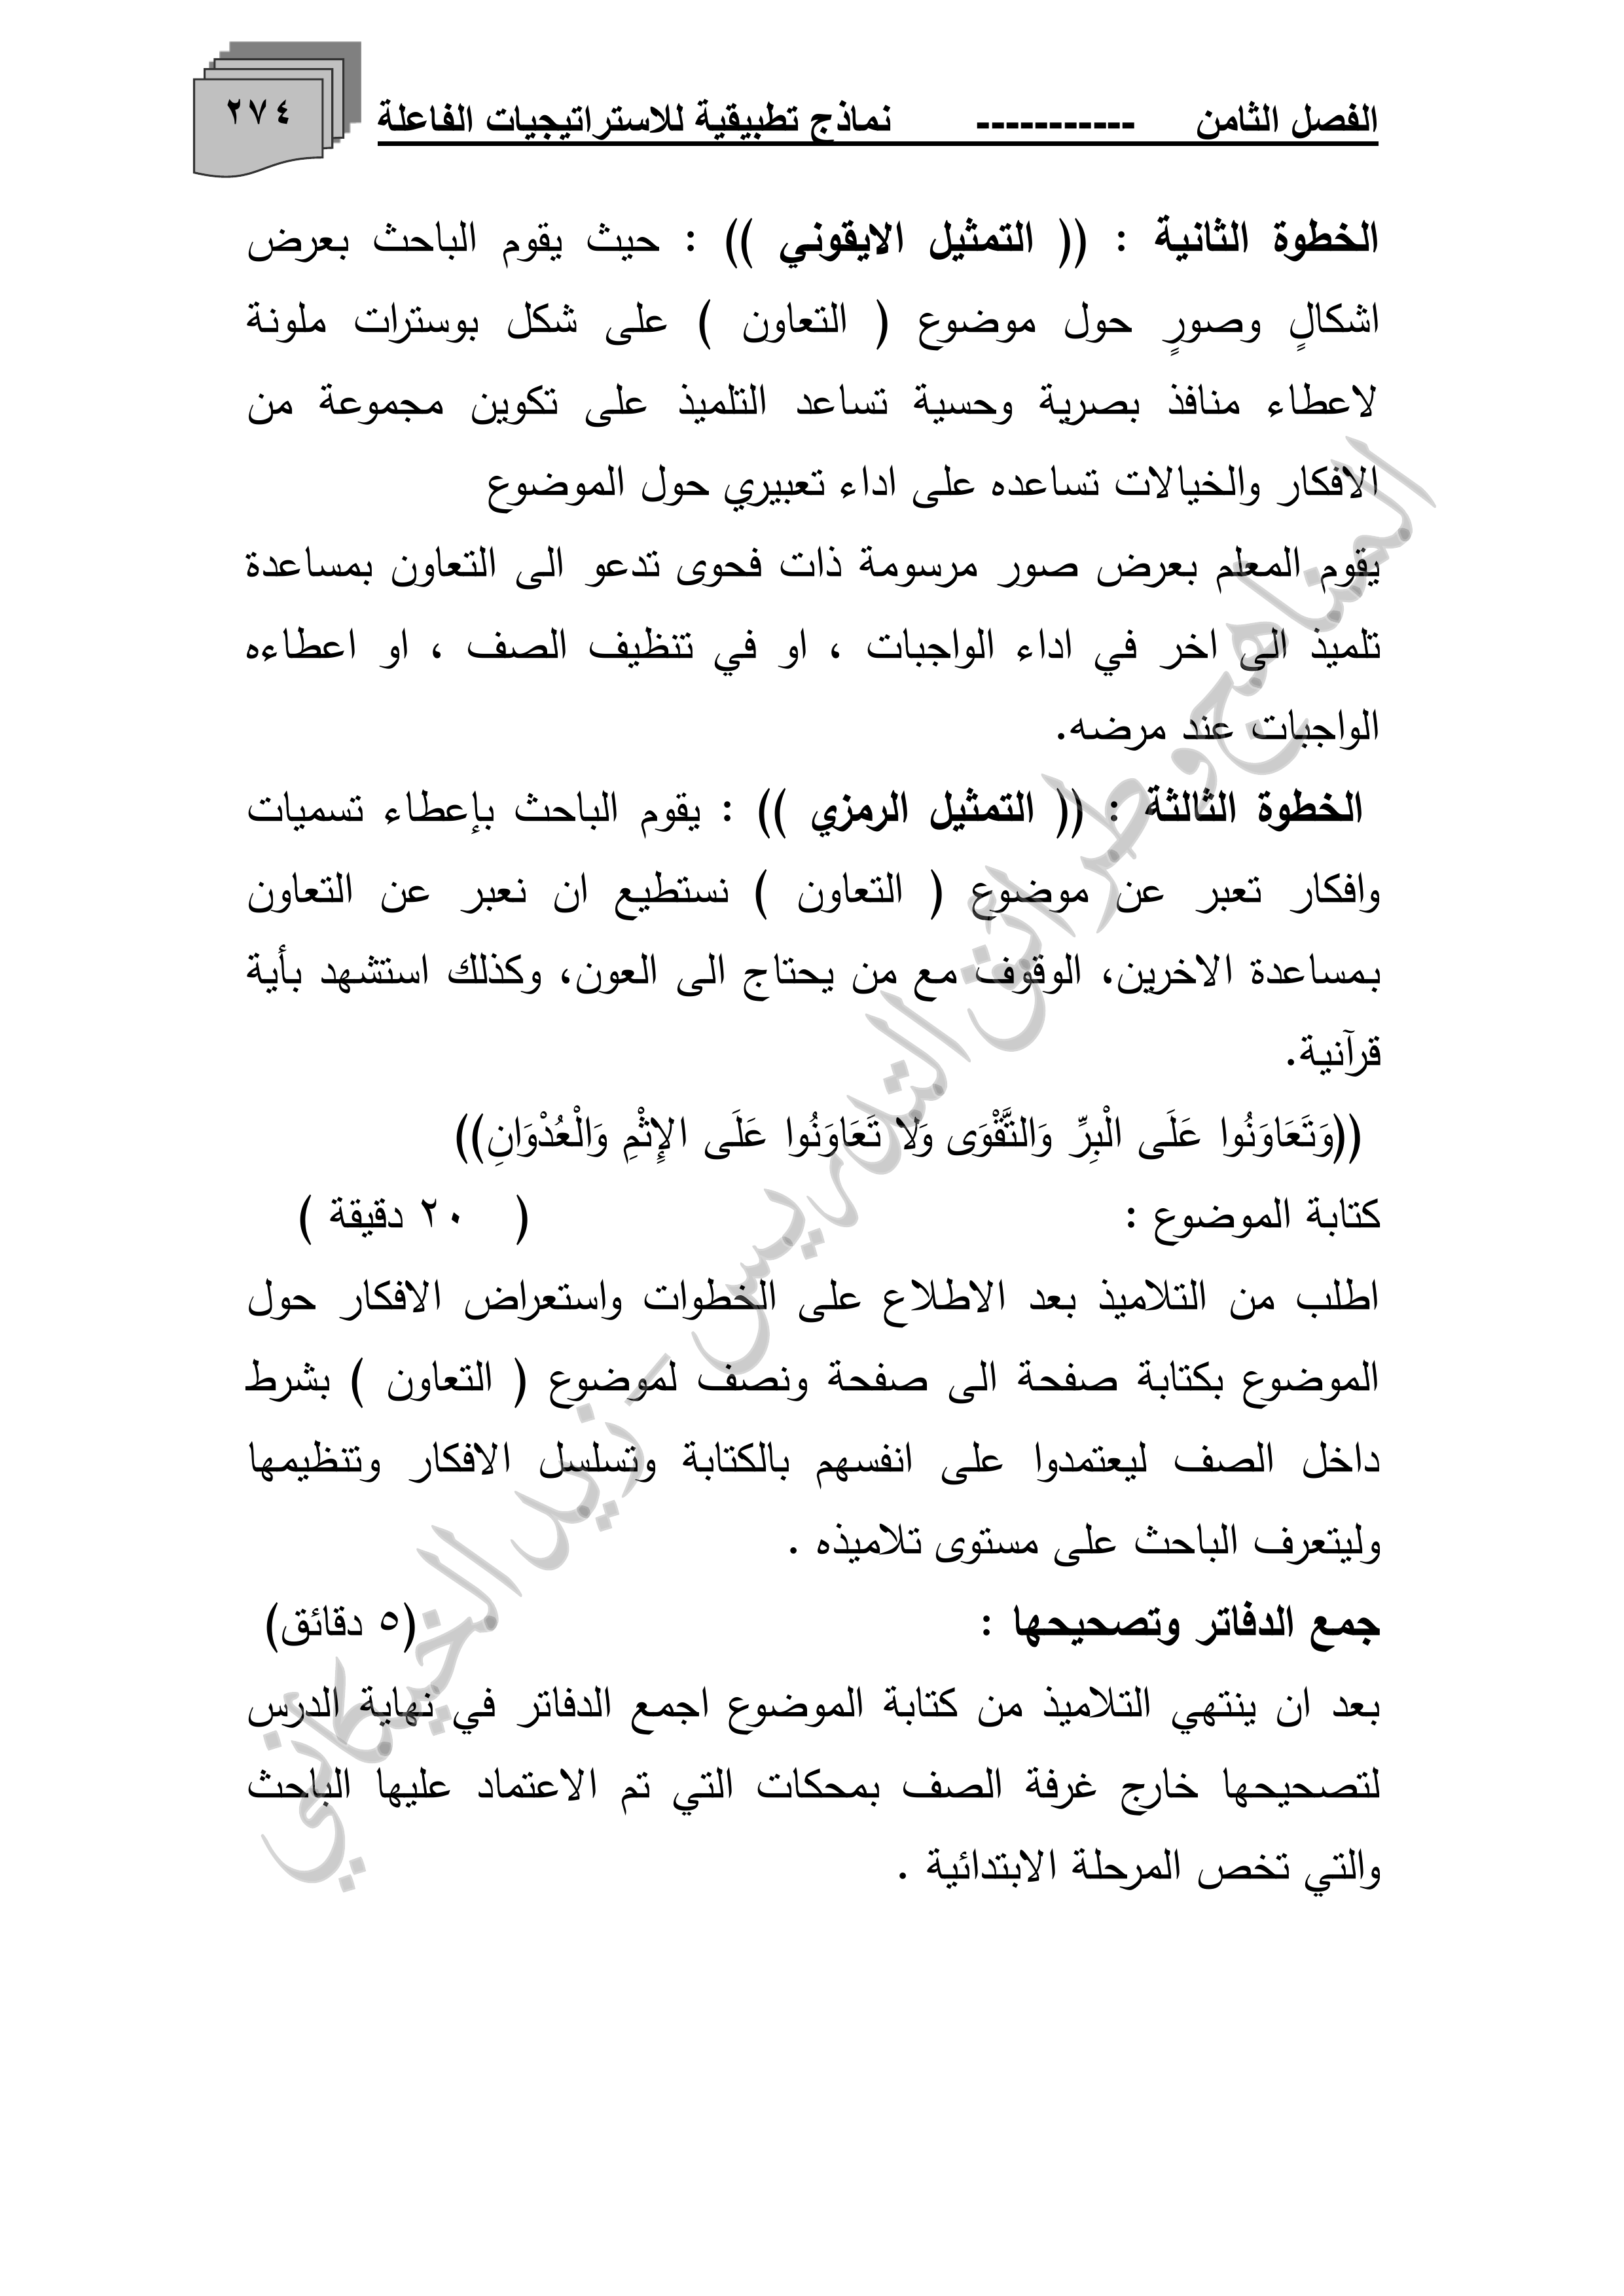 الفصل الثامن ----------- نماذج تطبيقية للاستراتيجيات الفاعلة ٢٧٤
الخطوة الثانية : (( التمثيل الايقوني )) : حيث يقوم الباحث بعرض
اشكالٍ وصورٍ حول موضوع ( التعاون ) على شكل بوسترات ملونة
لاعطاء منافذ بصرية وحسية تساعد التلميذ على تكوين مجموعة من
الافكار والخيالات تساعده على اداء تعبيري حول الموضوع
يقوم المعلم بعرض صور مرسومة ذات فحوى تدعو الى التعاون بمساعدة
تلميذ الى اخر في اداء الواجبات ، او في تنظيف الصف ، او اعطاءه
الواجبات عند مرضه.
الخطوة الثالثة : (( التمثيل الرمزي )) : يقوم الباحث بإعطاء تسميات
وافكار تعبر عن موضوع ( التعاون ) نستطيع ان نعبر عن التعاون
بمساعدة الاخرين، الوقوف مع من يحتاج الى العون، وكذلك استشهد بأية
قرآنية.
((وَتَعَاوَنُوا عَلَى الْبِرِّ وَالتَّقْوَى وَلَا تَعَاوَنُوا عَلَى الإِثْمِ وَالْعُدْوَانِ))
كتابة الموضوع : ( ٢٠ دقيقة )
اطلب من التلاميذ بعد الاطلاع على الخطوات واستعراض الافكار حول
الموضوع بكتابة صفحة الى صفحة ونصف لموضوع ( التعاون ) بشرط
داخل الصف ليعتمدوا على انفسهم بالكتابة وتسلسل الافكار وتنظيمها
وليتعرف الباحث على مستوى تلاميذه .
جمع الدفاتر وتصحيحها : (٥ دقائق)
بعد ان ينتهي التلاميذ من كتابة الموضوع اجمع الدفاتر في نهاية الدرس
لتصحيحها خارج غرفة الصف بمحكات التي تم الاعتماد عليها الباحث
والتي تخص المرحلة الابتدائية .
المناهج وطرائق التدريس - زيد الخيكاني